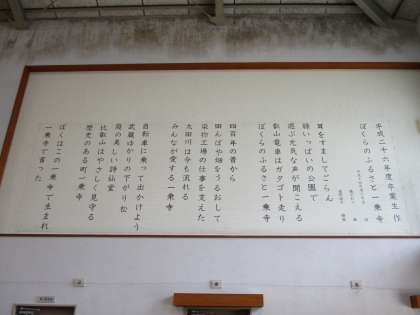 平成二十六年度卒業生作
ぼくらのふるさと一乗寺
耳をすましてごらん
緑いっぱいの公園で
遊ぶ元気な声が聞こえる
叡山電車はガタゴト走り
ぼくらのふるさと一乗寺
四百年の昔から
田んぼや畑をうるおして
染物工場の仕事を支えた
太田川は今も流れる
みんなが愛する一乗寺
自転車に乗って出かけよう
武蔵ゆかりの下がり松
庭の美しい詩仙堂
比叡山はやさしく見守る
歴史のある町一乗寺
ぼくはこの一乗寺で生まれ
一乗寺で育った